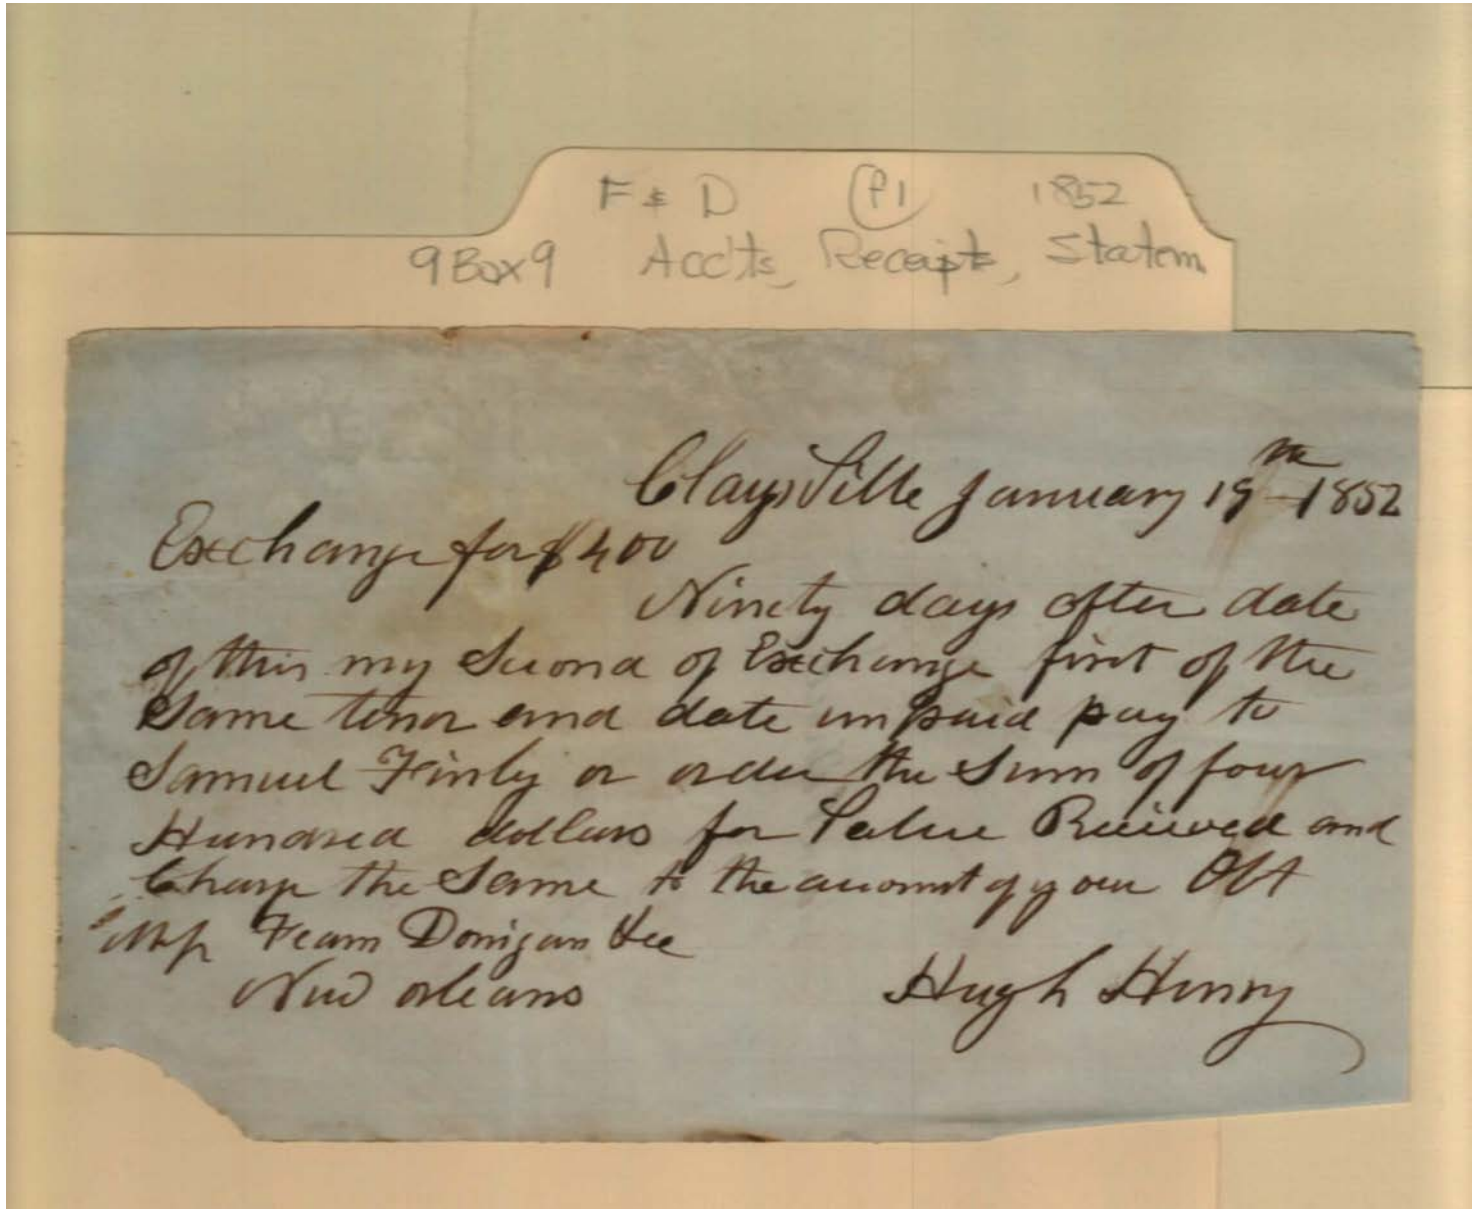 F & D P1 1852
9 Box 9 Acc'ts, Receipts, Statem
Claysville January 19th 1852
Exchange for $400
Ninety days after date
of this my Second of Exchange first of the
Same tenor and date unpaid pay to
Samuel Finly or order the Sum of four
Hundred dollars for Value Received and
Charge the Same to the account of your Obt
Fearn Donigan
New orleans Hugh Henry